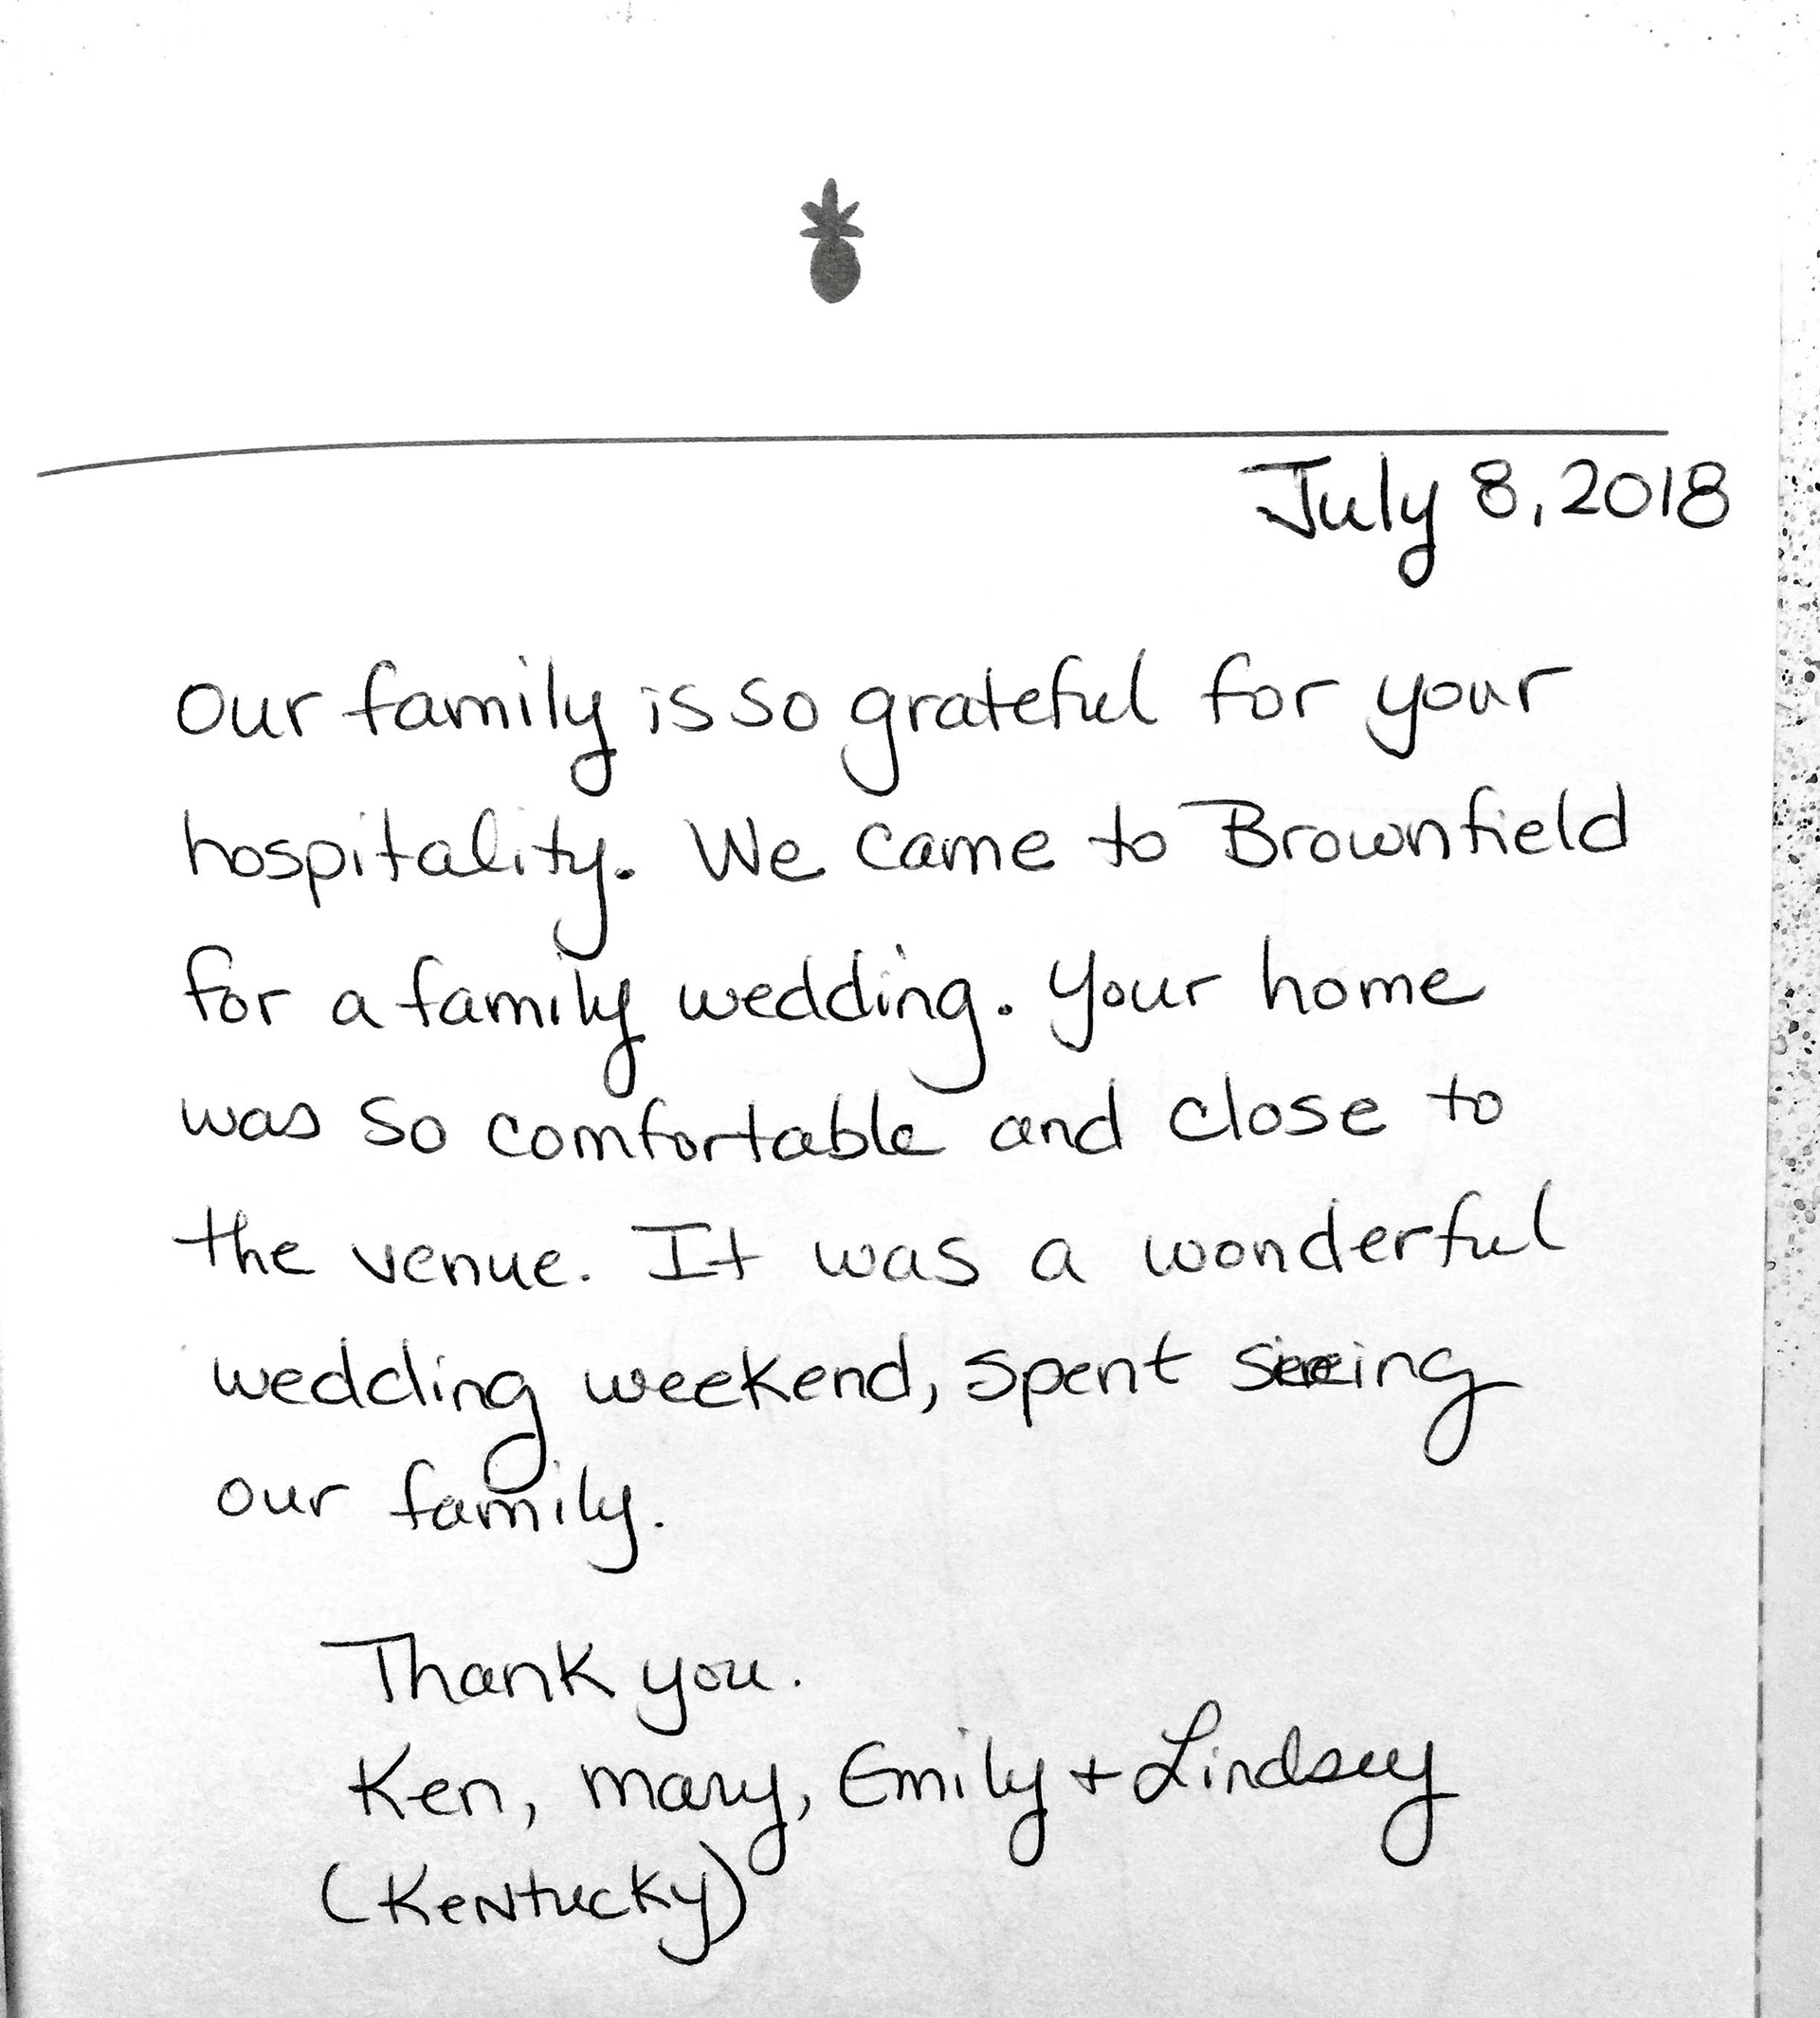 July 8, 2018
Our family is so grateful for your
hospitality. We came to Brownfield
for a family wedding. Your home
was so comfortable and close to
the venue. It was a wonderful
wedding weekend, spent seeing
our family.
Thank you.
Ken, Mary, Emily + Lindsey
(Kentucky)